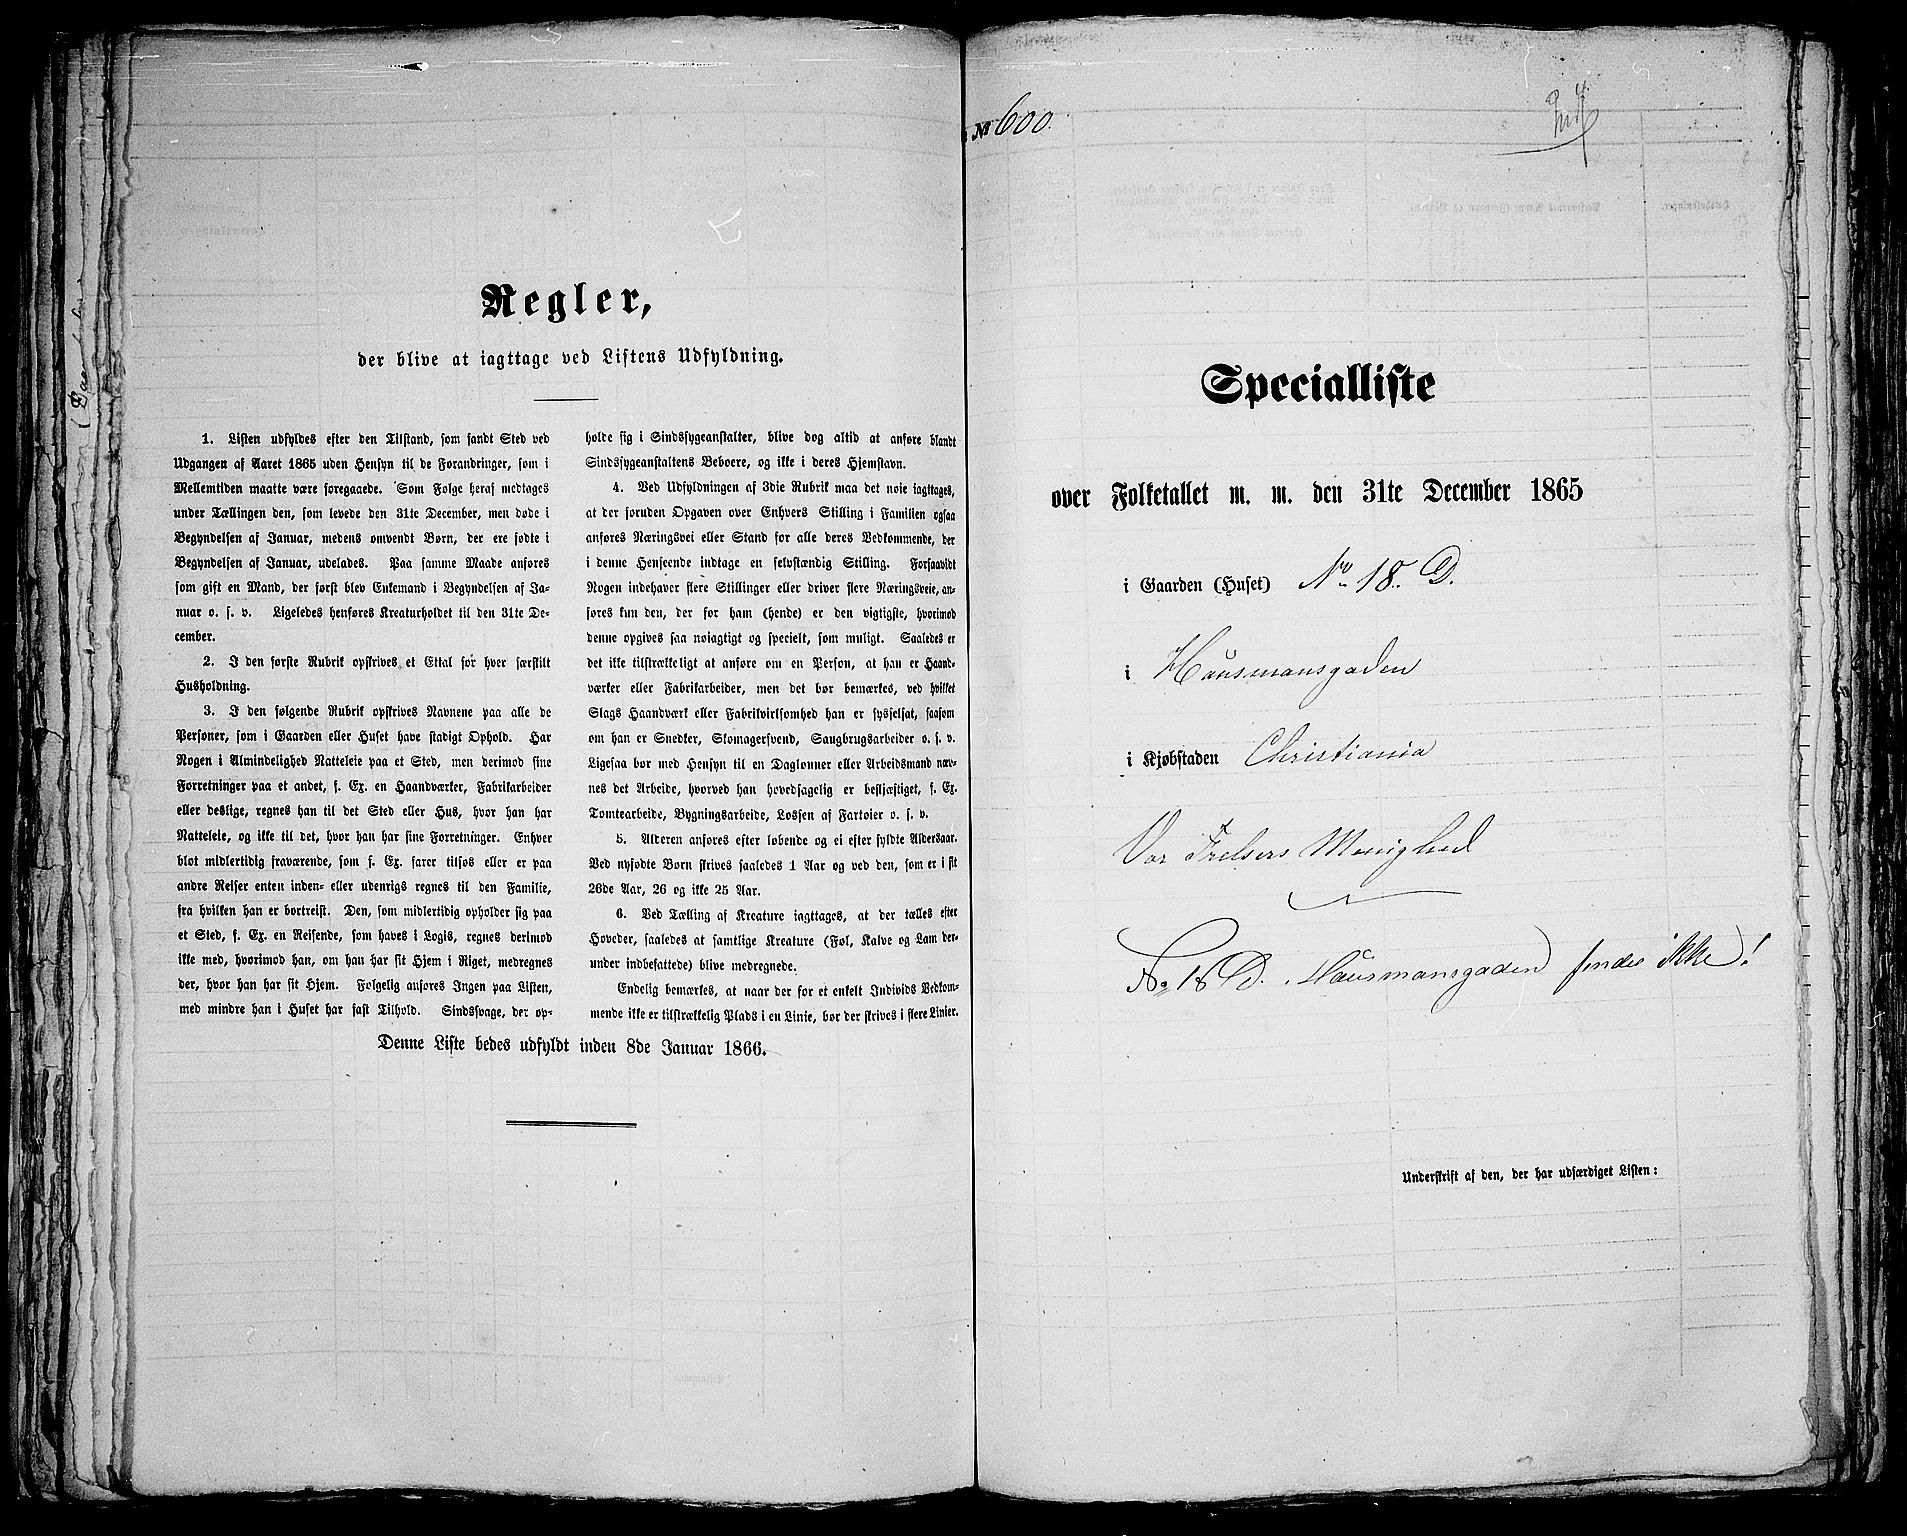 Regler,
der blive at iagttage ved Listens Udfyldning.
1. Listen udfyldes efter den Tilstand, som fandt Sted ved
Udgangen af Aaret 1865 uden Hensyn til de Forandringer, som i
Mellemtiden maatte være foregaaede. Som Følge heraf medtages
under Tællingen den, som levede den 31te December, men døde i
Begyndelsen af Januar, medens omvendt Børn, der ere fødte i
Begyndelsen af Januar, udelades. Paa samme Maade anføres
som gift en Mand, der først blev Enkemand i Begyndelsen af Ja-
nuar o. s. v. Ligeledes henføres Kreaturholdet til den 31te De-
cember.
2. I den første Rubrik opskrives et Ettal for hver særskilt
Husholdning.
3. I den følgende Rubrik opskrives Navnene paa alle de
Personer, som i Gaarden eller Huset have stadigt Ophold. Har
Nogen i Almindelighed Natteleie paa et Sted, men derimod sine
Forretninger paa et andet, f. Ex. en Haandværker, Fabrikarbeider
eller deslige, regnes han til det Sted eller Hus, hvor han har
Natteleie, og ikke til det, hvor han har sine Forretninger. Enhver
blot midlertidig fraværende, som f. Ex. farer tilsøs eller er paa
andre Reiser enten inden- eller udenrigs regnes til den Familie,
fra hvilken han er bortreist. Den, som midlertidig opholder sig paa
et Sted, f. Ex. en Reisende, som haves i Logis, regnes derimod
ikke med, hvorimod han, om han har sit Hjem i Riget, medregnes
der, hvor han har sit Hjem. Følgelig anføres Ingen paa Listen,
med mindre han i Huset har fast Tilhold. Sindssvage, der op-
holde sig i Sindssygeanstalter, blive dog altid at anføre blandt
Sindssygeanstaltens Beboere, og ikke i deres Hjemstavn.
4. Ved Udfyldningen af 3die Rubrik maa det nøie iagttages,
at der foruden Opgaven over Enhvers Stilling i Familien ogsaa
anføres Næringsvei eller Stand for alle deres Vedkommende, der
i denne Henseende indtage en selvstændig Stilling. Forsaavidt
Nogen indehaver flere Stillinger eller driver flere Næringsveie, an-
føres kun den, der for ham (hende) er den vigtigste, hvorimod
denne opgives saa nøiagtigt og specielt, som muligt. Saaledes er
det ikke tilstrækkeligt at anføre om en Person, at han er Haand-
værker eller Fabrikarbeider, men det bør bemærkes, ved hvilket
Slags Haandværk eller Fabrikvirksomhed han er sysselsat, saasom
om han er Snedker, Skomagersvend, Saugbrugsarbeider o. s. v.
Ligesaa bør med Hensyn til en Daglønner eller Arbeidsmand næv-
nes det Arbeide, hvorved han hovedsagelig er beskjæftiget, f. Ex.
Tomtearbeide, Bygningsarbeide, Lossen af Fartøier o. s. v.
5. Alderen anføres efter løbende og ei efter fyldte Aldersaar.
Ved nyfødte Børn skrives saaledes 1 Aar og ved den, som er i sit
26de Aar, 26 og ikke 25 Aar.
6. Ved Tælling af Kreature iagttages, at der tælles efter
Hoveder, saaledes at samtlige Kreature (Føl, Kalve og Lam der-
under indbefattede) blive medregnede.
Endelig bemærkes, at naar der for et enkelt Individs Vedkom-
mende ikke er tilstrækkelig Plads i en Linie, bør der skrives i flere Linier.
Denne Liste bedes udfyldt inden 8de Januar 1866.
№ 600.
Specialliste
over Folketallet m. m. den 31te December 1865
i Gaarden (Huset) No 18. D.
i Hausmansgaden
i Kjøbstaden Christiania
Vor Frelsers Menighed
No 18 D. Hausmansgaden findes ikke!
Underskrift af den, der har udfærdiget Listen: